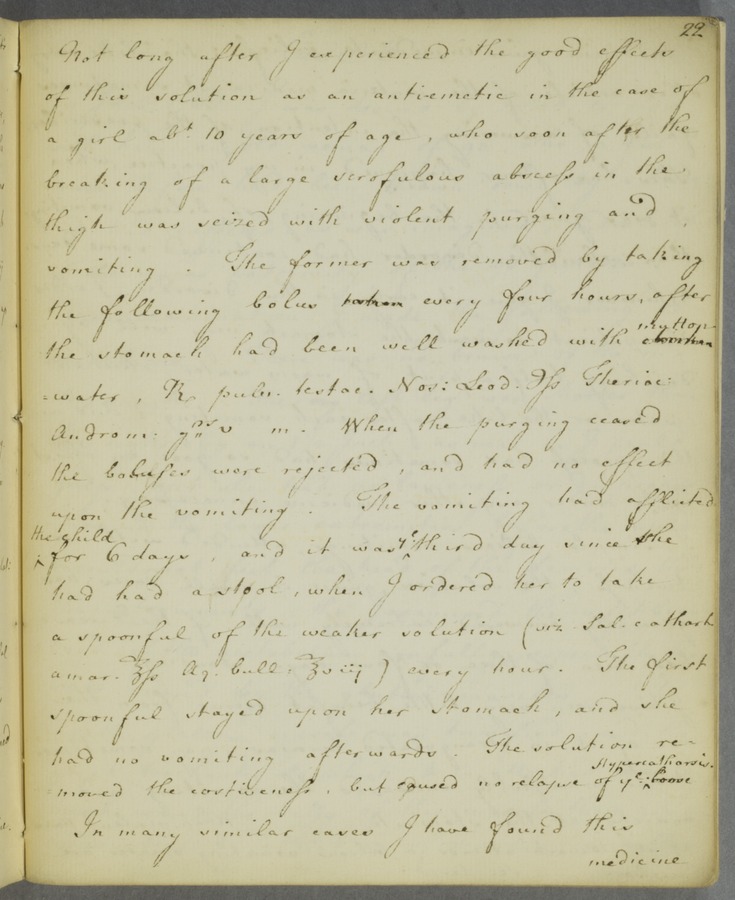 22
Not long after I experienced the good effects
of this solution as an antiemetic in the case of
a girl abt. 10 years of age, who soon after the
breaking of a large scrofulous abscess in the
thigh was seized with violent purging and
vomiting. The former was removed by taking
the following bolus taken every four hours, after
the stomach had been well washed with common
-water, ℞. pulv. testac. Nos: Leod. ℈ſs Theriac:
Androm: grs v m. When the purging ceased
the boluses were rejected, and had no effect
upon the vomiting. The vomiting had afflicted
the child
for 6 days, and it was ye third day since she
had had a stool, when I ordered her to take
a spoonful of the weaker solution (viz Sal. cathart
amar. ℥ſs Aq. bull. ℥viij) every hour. The first
spoonful stayed upon her stomach, and she
had no vomiting afterwards. The solution re-
Hypercatharsis.
-moved the costiveness, but caused no relapse of ye: loose
In many similar cases I have found this
medicine